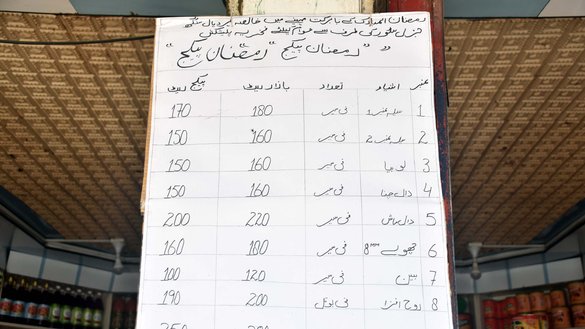 رمضان المبارک کے بابرکت مہینے میں خالصہ گوردیال سنگھ
جنرل سٹور کی طرف سے عوام کیلئے
" رمضان پیکج " رمضان پیکج "
نمبر اشیاء تعداد بازار ریٹ پیکج ریٹ
1 فی سیر 180 170
2 فی سیر 160 150
3 لوبیا فی سیر 160 150
4 دال چنا فی سیر 160 150
5 دال ماش فی سیر 220 200
6 چھولے 8mm فی سیر 180 160
7 بیسن فی سیر 120 100
8 روح افزا فی بوتل 200 190